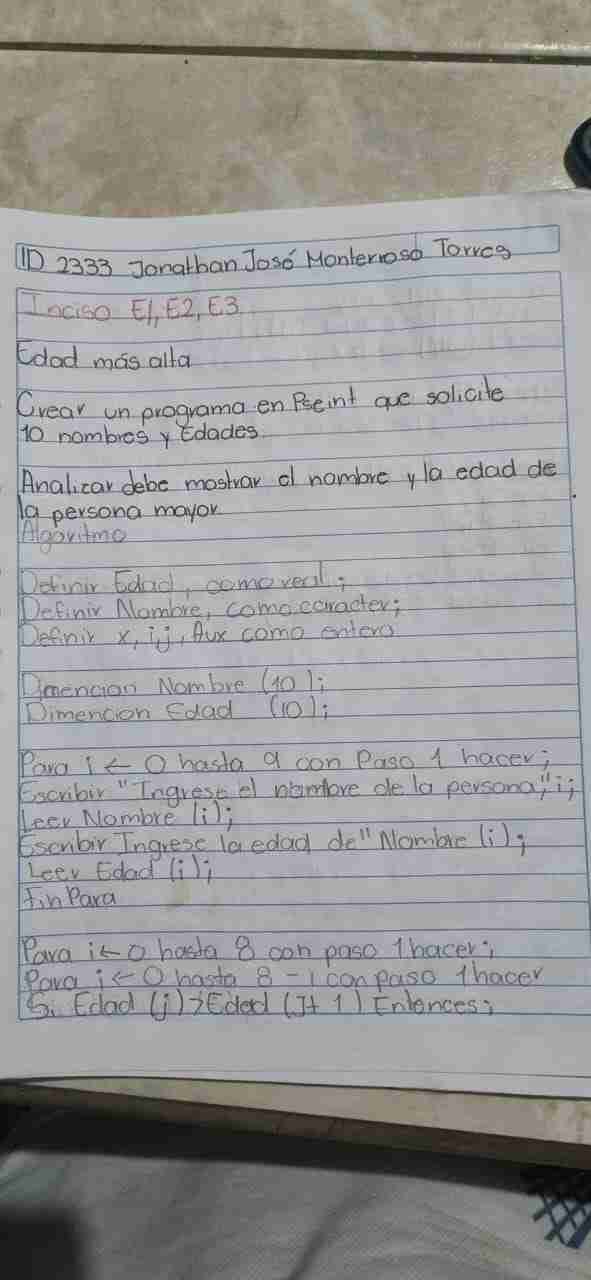 ID 2333 Jonathan José Monterroso Torres
Inciso E1, E2, E3
Edad más alta
Crear un programa en Pseint que solicite
10 nombres y Edades
Analizar debe mostrar el nombre y la edad de
la persona mayor
Algoritmo
Definir Edad, como real;
Definir Nombre, como caracter;
Definir x, i, j, Aux como entero
Dimencion Nombre (10);
Dimencion Edad (10);
Para i ← 0 hasta 9 con Paso 1 hacer;
Escribir "Ingrese el nombre de la persona," i;
Leer Nombre (i);
Escribir Ingrese la edad de" Nombre (i);
Leer Edad (i);
Fin Para
Para i ← 0 hasta 8 con paso 1 hacer;
Para j ← 0 hasta 8 - i con paso 1 hacer
Si Edad (j) > Edad (J+ 1) Entonces;